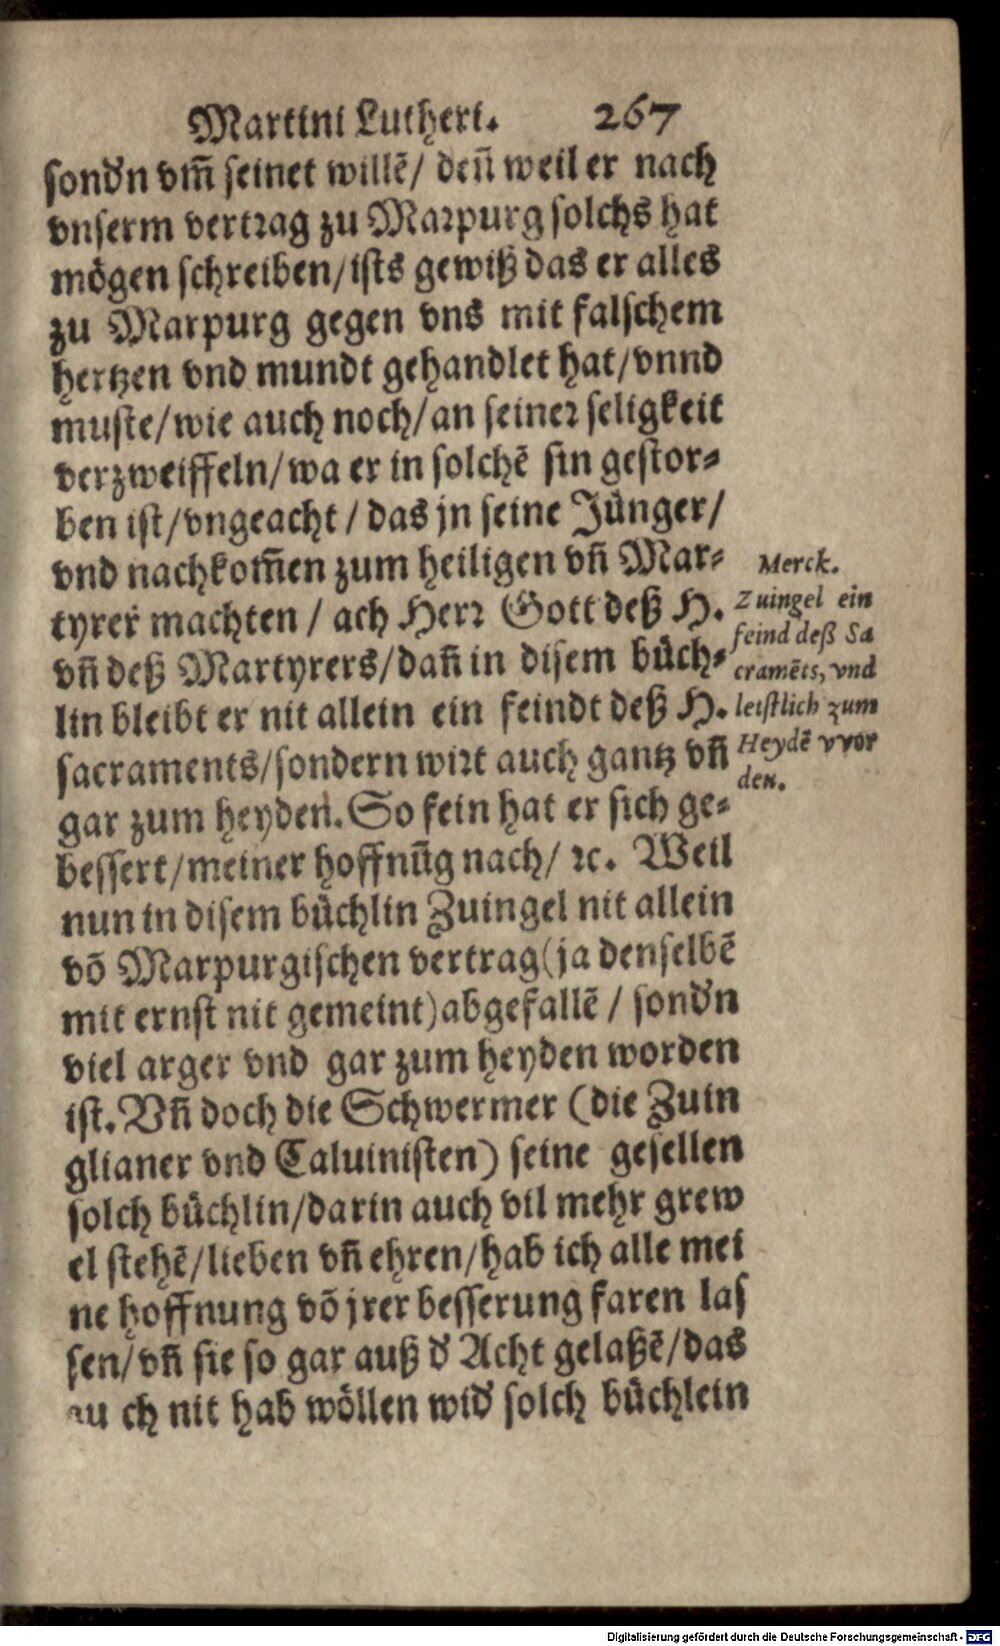 Martini Lutheri. 267
sondn vm̃ seinet willẽ/ deñ weil er nach
vnserm vertrag zu Marpurg solchs hat
mögen schreiben/ists gewiß das er alles
zu Marpurg gegen vns mit falschem
hertzen vnd mundt gehandlet hat/vnnd
muste/wie auch noch/an seiner seligkeit
verzweiffeln/wa er in solchẽ sin gestor⸗
ben ist/vngeacht/das jn seine Jünger/
vnd nachkom̃en zum heiligen vñ Mar⸗
tyrer machten/ ach Herr Gott deß H.
vñ deß Martyrers/dañ in disem büch⸗
lin bleibt er nit allein ein feindt deß H.
sacraments/sondern wirt auch gantz vñ
gar zum heyden. So fein hat er sich ge⸗
bessert/meiner hoffnũg nach/ ꝛc. Weil
nun in disem büchlin Zuingel nit allein
võ Marpurgischen vertrag(ja denselbẽ
mit ernst nit gemeint)abgefallẽ/ sondn
viel arger vnd gar zum heyden worden
ist. Vñ doch die Schwermer (die Zuin
glianer vnd Caluinisten) seine gesellen
solch büchlin/darin auch vil mehr grew
el stehẽ/lieben vñ ehren/hab ich alle mei
ne hoffnung võ jrer besserung faren las
sen/vñ sie so gar auß d Acht gelaßẽ/das
au ch nit hab wöllen wid solch büchlein
Merck.
Zuingel ein
feind deß Sa
cramẽts, vnd
letstlich zum
Heydẽ vvor
den.
Digitalisierung gefördert durch die Deutsche Forschungsgemeinschaft - DFG